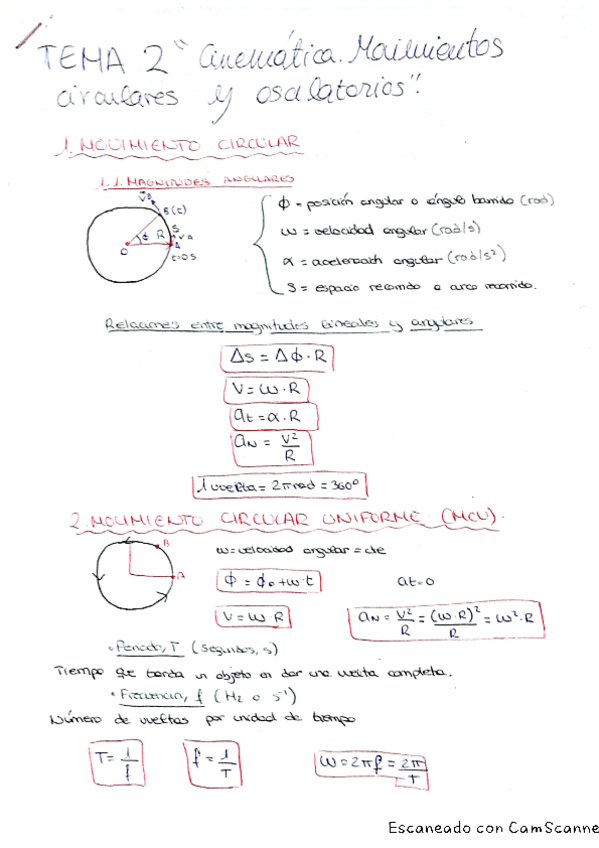 TEMA 2 "Cinemática. Movimientos
circulares y oscilatorios".
1. MOVIMIENTO CIRCULAR
1.1. MAGNITUDES ANGULARES
VB
B(t)
S
VA
ϕ R
A
O
t=0s
ϕ = posición angular o ángulo barrido (rad)
ω = velocidad angular (rad/s)
α = aceleración angular (rad/s²)
S = espacio recorrido o arco recorrido.
Relaciones entre magnitudes lineales y angulares
Δs = Δϕ · R
V = ω · R
at = α · R
aN = V²/R
1 vuelta = 2π rad = 360°
2. MOVIMIENTO CIRCULAR UNIFORME (MCU).
B
A
ω = velocidad angular = cte
ϕ = ϕ₀ + ω · t
at = 0
V = ω · R
aN = V²/R = (ω · R)²/R = ω² · R
• Periodo, T (segundos, s)
Tiempo que tarda un objeto en dar una vuelta completa.
• Frecuencia, f (Hz o s⁻¹)
Número de vueltas por unidad de tiempo
T = 1/f
f = 1/T
ω = 2πf = 2π/T
Escaneado con CamScanne